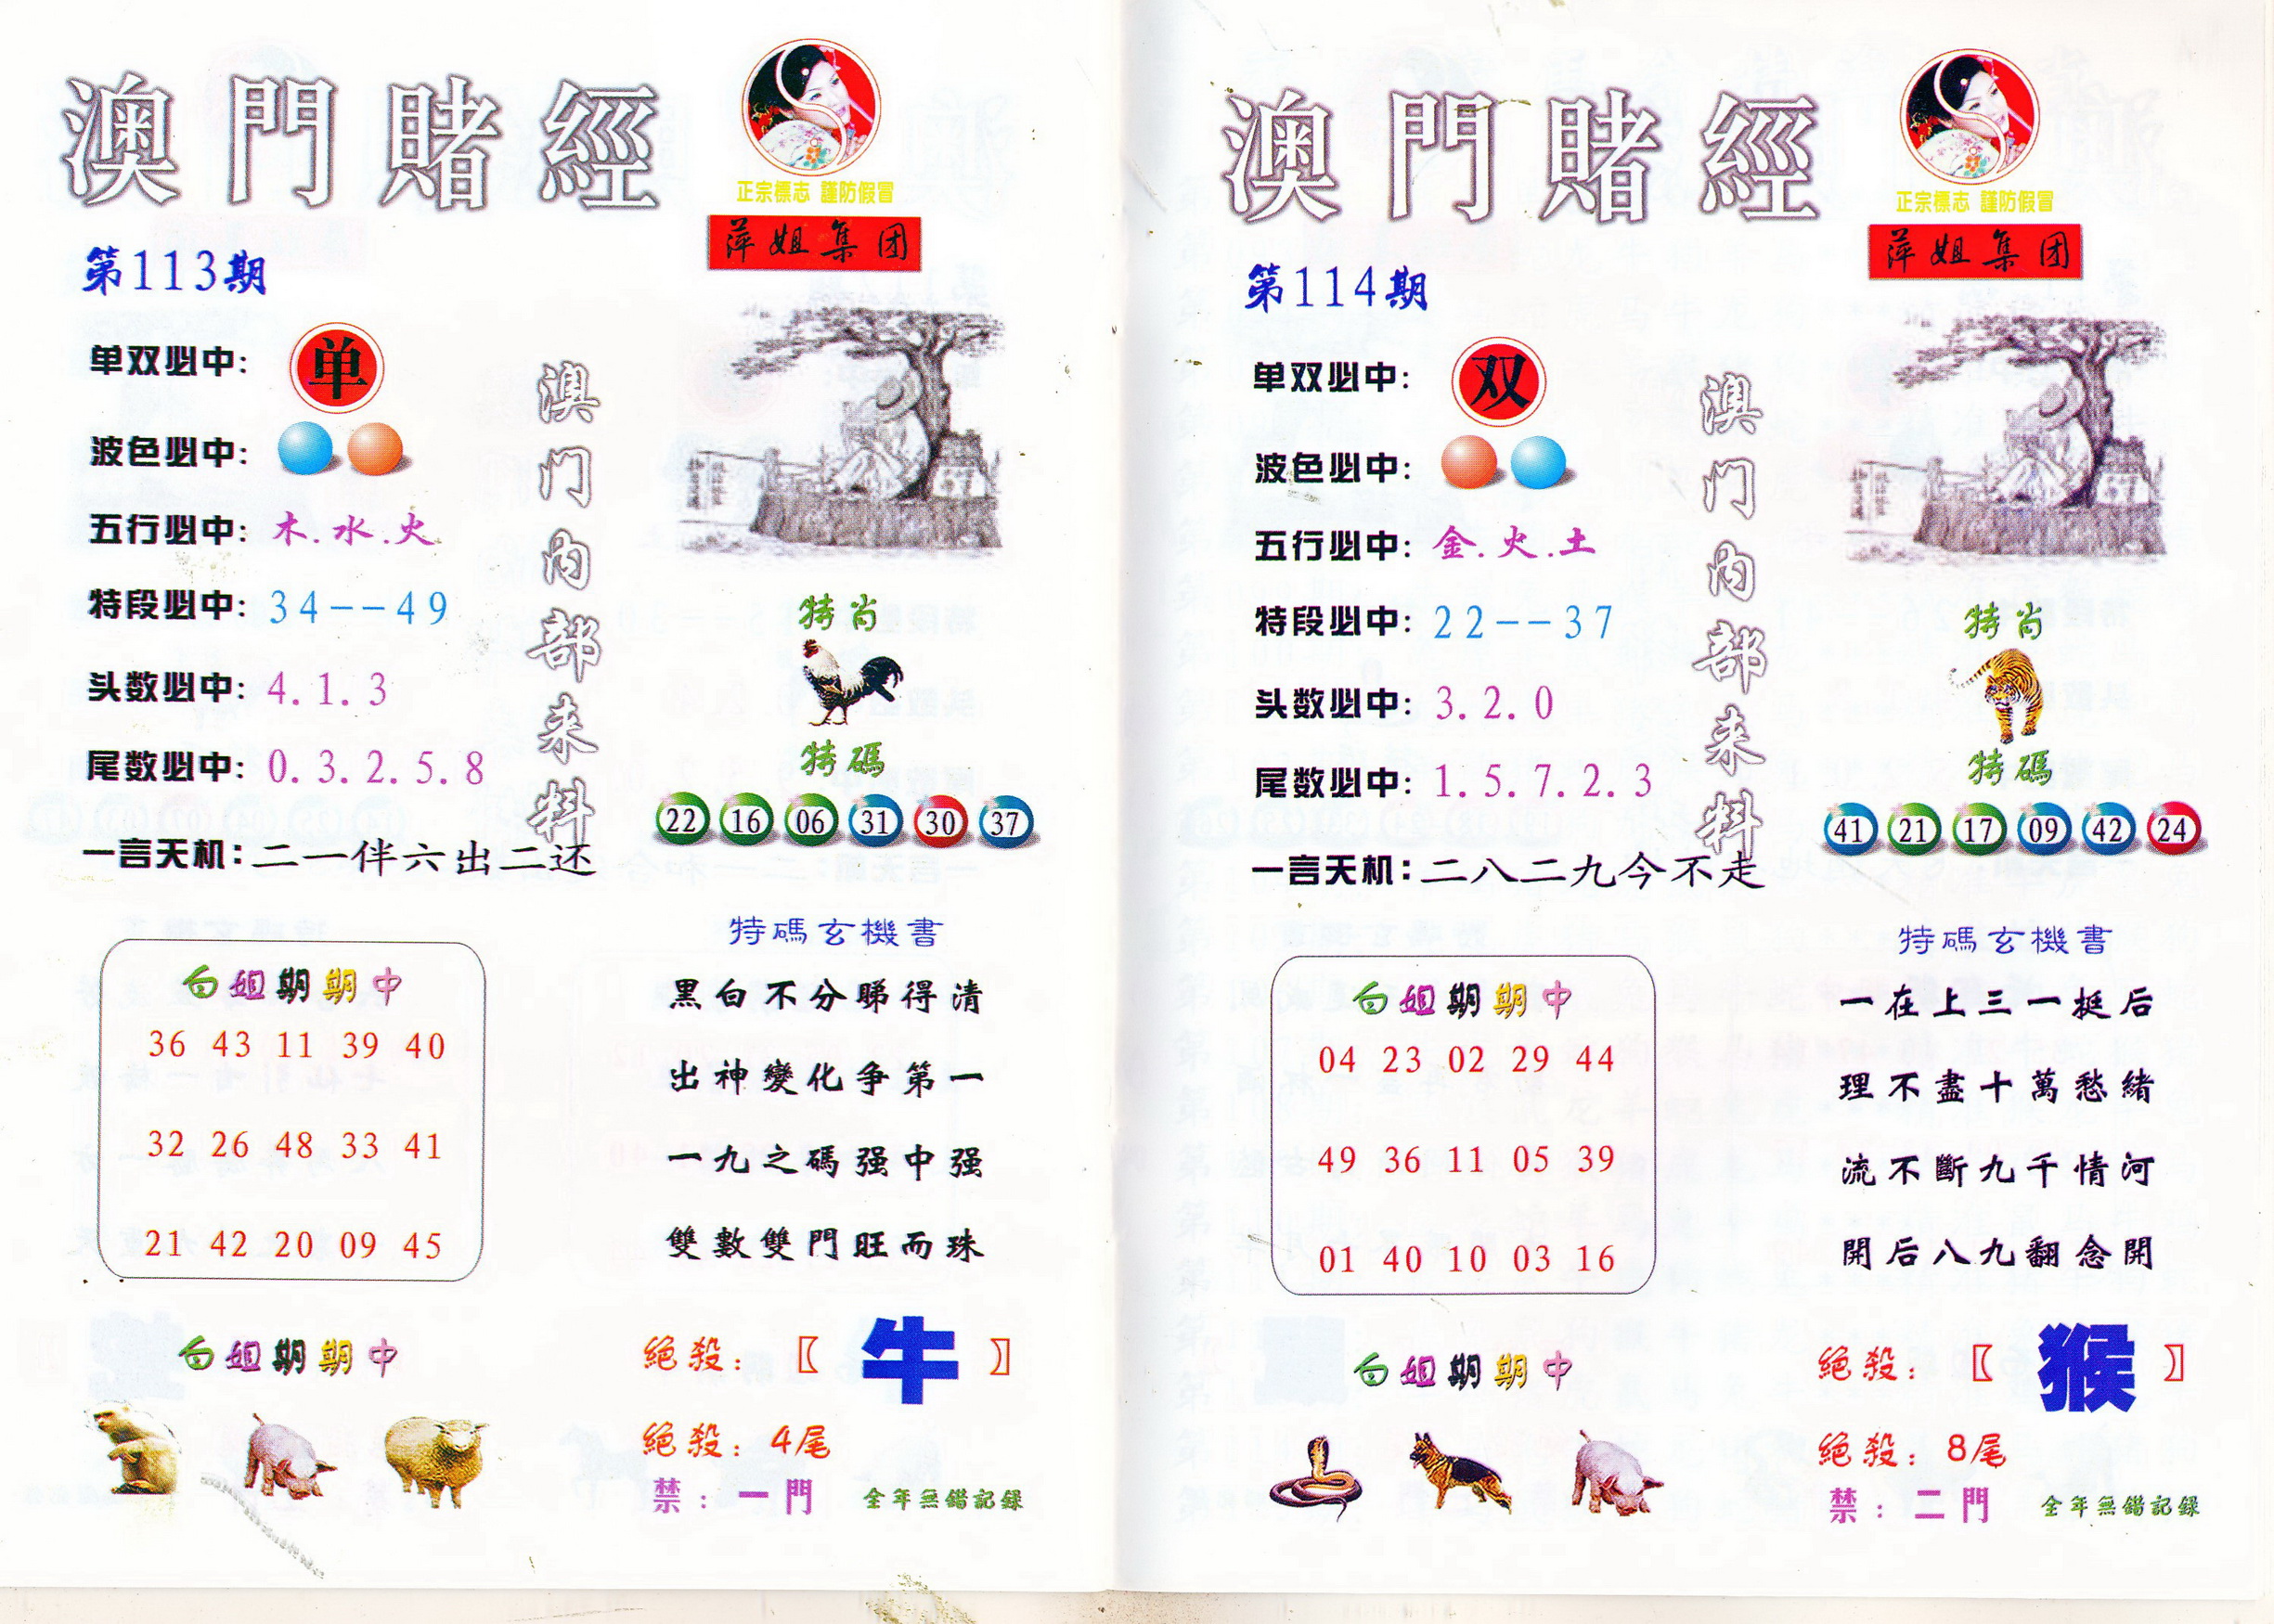 澳門賭經
正宗標志 謹防假冒
萍姐集团
第113期
单双必中: 单
波色必中:
五行必中: 木.水.火
特段必中: 34--49
头数必中: 4.1.3
尾数必中: 0.3.2.5.8
一言天机: 二一伴六出二还
澳门内部来料
特肖
特碼
22 16 06 31 30 37
白姐期期中
36 43 11 39 40
32 26 48 33 41
21 42 20 09 45
特碼玄機書
黑白不分睇得清
出神變化争第一
一九之碼强中强
雙數雙門旺而珠
白姐期期中
絕殺: 〖牛〗
絕殺: 4尾
禁: 一門
全年無錯記録
澳門賭經
正宗標志 謹防假冒
萍姐集团
第114期
单双必中: 双
波色必中:
五行必中: 金.火.土
特段必中: 22--37
头数必中: 3.2.0
尾数必中: 1.5.7.2.3
一言天机: 二八二九今不走
澳门内部来料
特肖
特碼
41 21 17 09 42 24
白姐期期中
04 23 02 29 44
49 36 11 05 39
01 40 10 03 16
特碼玄機書
一在上三一挺后
理不盡十萬愁緒
流不斷九千情河
開后八九翻念開
白姐期期中
絕殺: 〖猴〗
絕殺: 8尾
禁: 二門
全年無錯記録